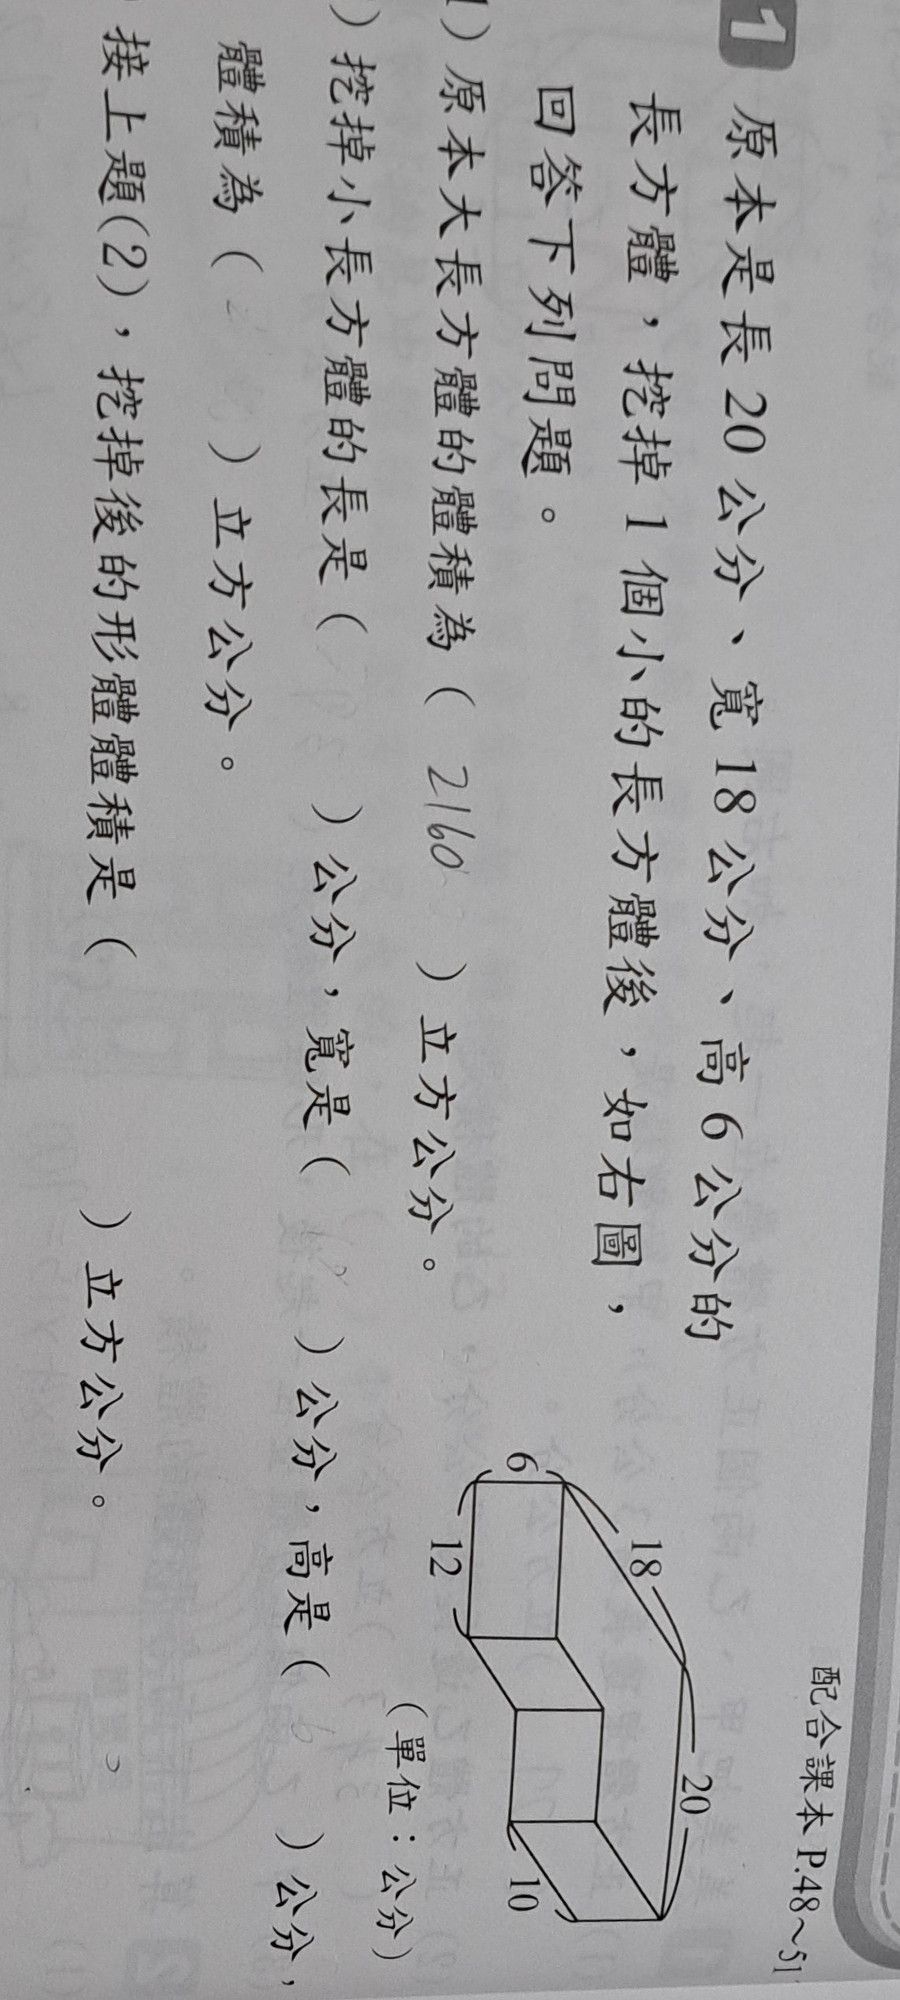 配合課本 P.48～51
1 原本是長 20 公分、寬 18 公分、高 6 公分的
長方體，挖掉 1 個小的長方體後，如右圖，
回答下列問題。
1）原本大長方體的體積為（ 2160 ）立方公分。
）挖掉小長方體的長是（ ）公分，寬是（ ）公分，高是（ 6 ）公分，
體積為（ ）立方公分。
接上題(2)，挖掉後的形體體積是（ ）立方公分。
18
20
6
12
10
（單位：公分）